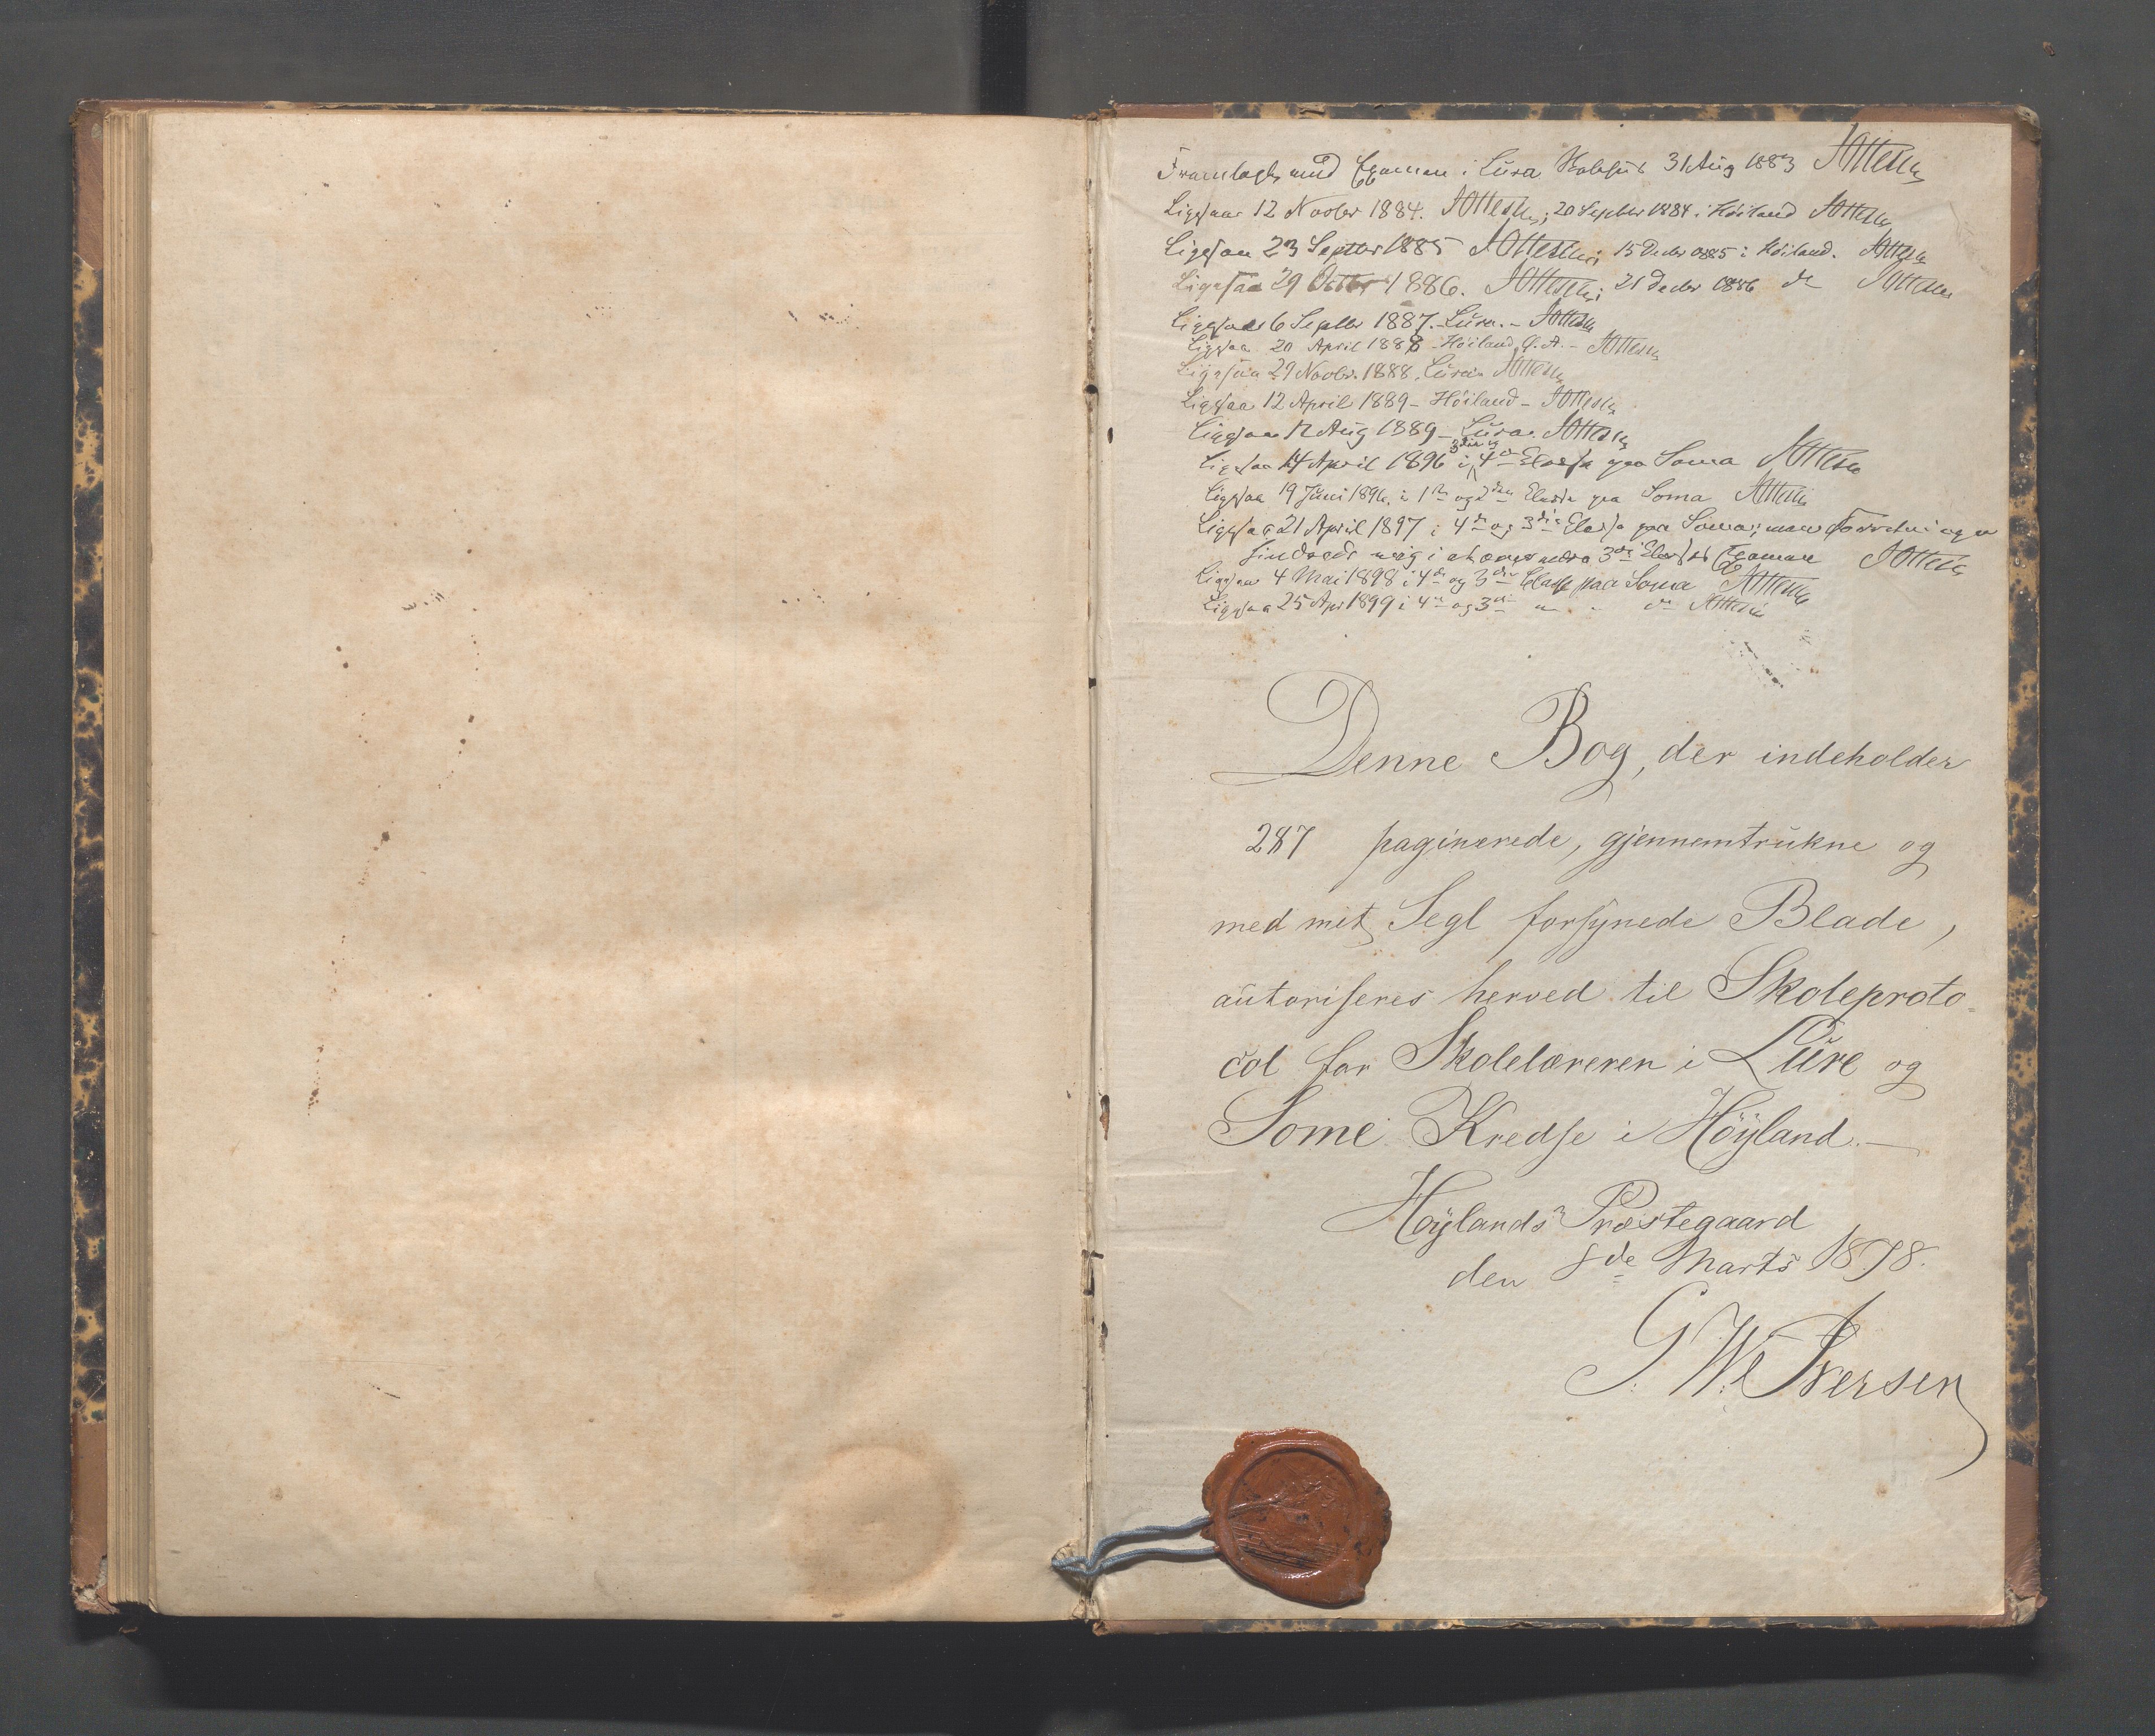 Fremlagt ved Examen i Lura Skolehus 31 Aug 1883 JOttesen
Ligesaa 12 Novbr 1884. JOttesen; 20 Septbr 1884 i Höiland JOttesen
Ligesaa 23 Septbr 1885 JOttesen; 15 Decbr 1885 i Höiland. JOttesen
Ligesaa 29 Octbr 1886. JOttesen; 21 Decbr 1886 do JOttesen
Ligesaa 6 Septbr 1887. - Lura. - JOttesen
Ligesaa 20 April 1888 Höiland, - JOttesen
Ligesaa 29 Novbr. 1888. Lura JOttesen
Ligesaa 12 April 1889 - Höiland - JOttesen
Ligesaa 12 Aug 1889 - Lura. JOttesen
Ligesaa 14 April 1896 i 3die og 4de Classe paa Soma JOttesen
Ligesaa 19 Juni 1896. i 1ste og 2den Classe paa Soma JOttesen
Ligesaa 21 April 1897 i 4de og 3die Classe paa Soma; men Forretninger
hindrede mig i at overvære 3die Classes Examen JOttesen
Ligesaa 4 Mai 1898 i 4de og 3die Classe paa Soma JOttesen
Ligesaa 25 Apr 1899 i 4de og 3die " " do JOttesen
Denne Bog, der indeholder
287 paginerede, gjennemtrukne og
med mit Segl forsynede Blade,
autoriseres herved til Skoleproto-
col for Skolelæreren i Lure og
Some Kredse i Höyland. —
Höylands Præstegaard
den 8de Marts 1878.
G. W. Iversen